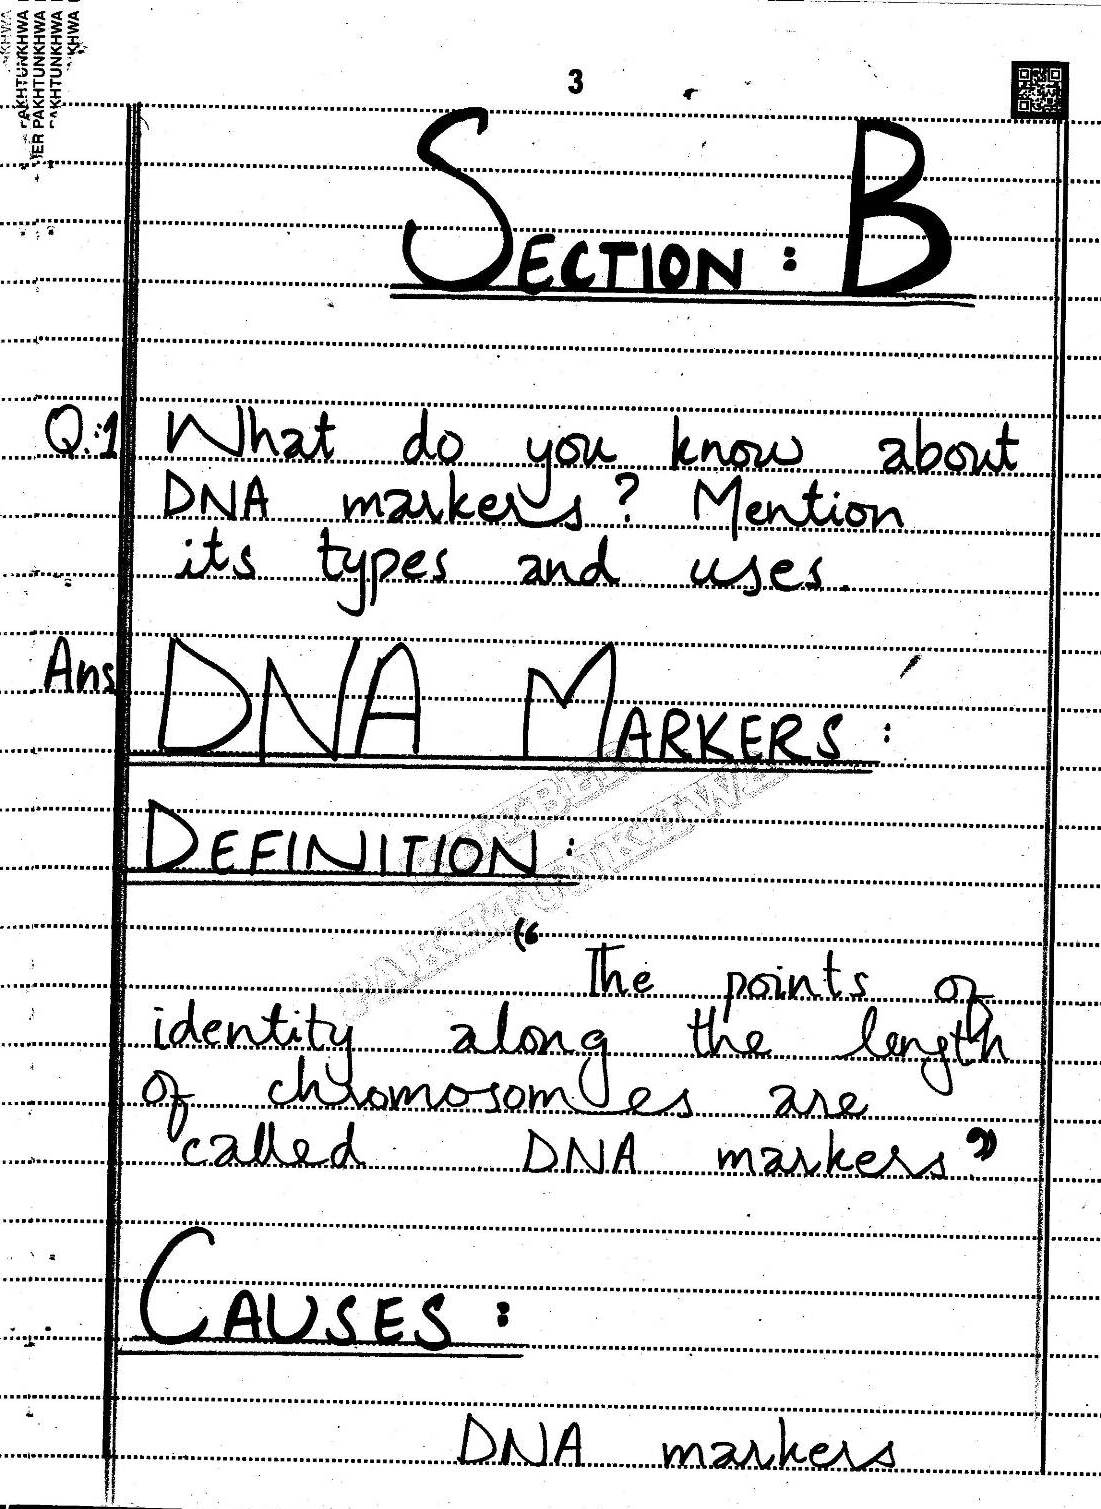 3
SECTION : B
Q:1 What do you know about
DNA markers? Mention
its types and uses.
Ans DNA MARKERS :
DEFINITION :
“ The points of
identity along the length
of chromosomes are
called DNA markers.”
CAUSES :
DNA markers
KHYBER
PAKHTUNKHWA
PAKHTUNKHWA
PAKHTUNKHWA